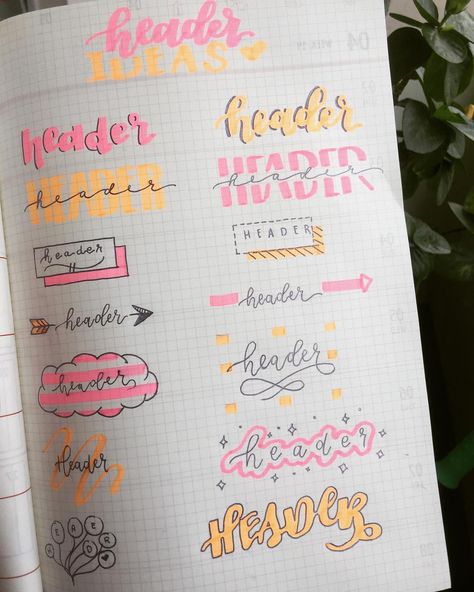 header
IDEAS
header
header
HEADER
header
HEADER
header
header
HEADER
header
header
header
header
Header
header
HEADER
HEADER
04